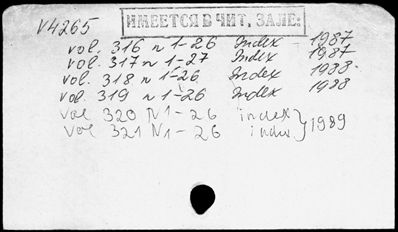 V4265
ИМЕЕТСЯ В ЧИТ. ЗАЛЕ:
vol. 316 n 1-26 Index - 1987
vol. 317 n 1-27 Index 1987
vol. 318 n 1-26 Index 1988.
vol. 319 n 1-26 Index 1988
vol 320 N 1-26 index
vol 321 N1-26 index } 1989